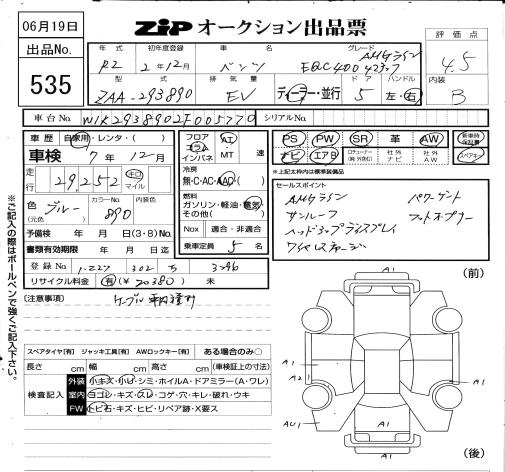 06月19日
ZIP オークション出品票
出品No.
535
年式 初年度登録 車名 グレード 評価点
R2 2年12月 ベンツ EQC400 4マチック AMGライン 4.5
型式 排気量 ドア ハンドル 内装
ZAA-293890 EV ディーラー・並行 5 左・右 B
車台No. W1K2938902F005770 シリアルNo.
車歴 自家用・レンタ・( )
車検 7年12月
走行 29,252 キロ マイル
色(元色) ブルー カラーNo. 890 内装色
予備検 年 月 日(3・8)No.
書類有効期限 年 月 日迄
登録No. 302
リサイクル料金 有(¥20380) 未
フロア コラム インパネ AT MT 速
冷房 無・C・AC・AAC・( )
燃料 ガソリン・軽油・電気 その他( )
Nox 適合・非適合
乗車定員 5 名
PS PW SR 革 AW 新車時保証書
ナビ エアB 社外ナビ 社外AW スペアキー
*上記太枠は標準装備品
セールスポイント
AMGライン パワーゲート
サンルーフ フットオープナー
ヘッドアップディスプレイ
ワイヤレスチャージ
※ご記入の際はボールペンで強くご記入下さい。
(注意事項)
スペアタイヤ[有] ジャッキ工具[有] AWロックキー[有] ある場合のみ○
長さ cm 幅 cm 高さ cm (車検証上の寸法)
検査記入
外装 小キズ・小凹・シミ・ホイルA・ドアミラー(A・ワレ)
室内 ヨゴレ・キズ・スレ・コゲ・穴・キレ・破れ・ウキ
FW トビ石・キズ・ヒビ・リペア跡・X要ス
(前)
A1
A1
A2
A1
AU1
A1
A1
(後)